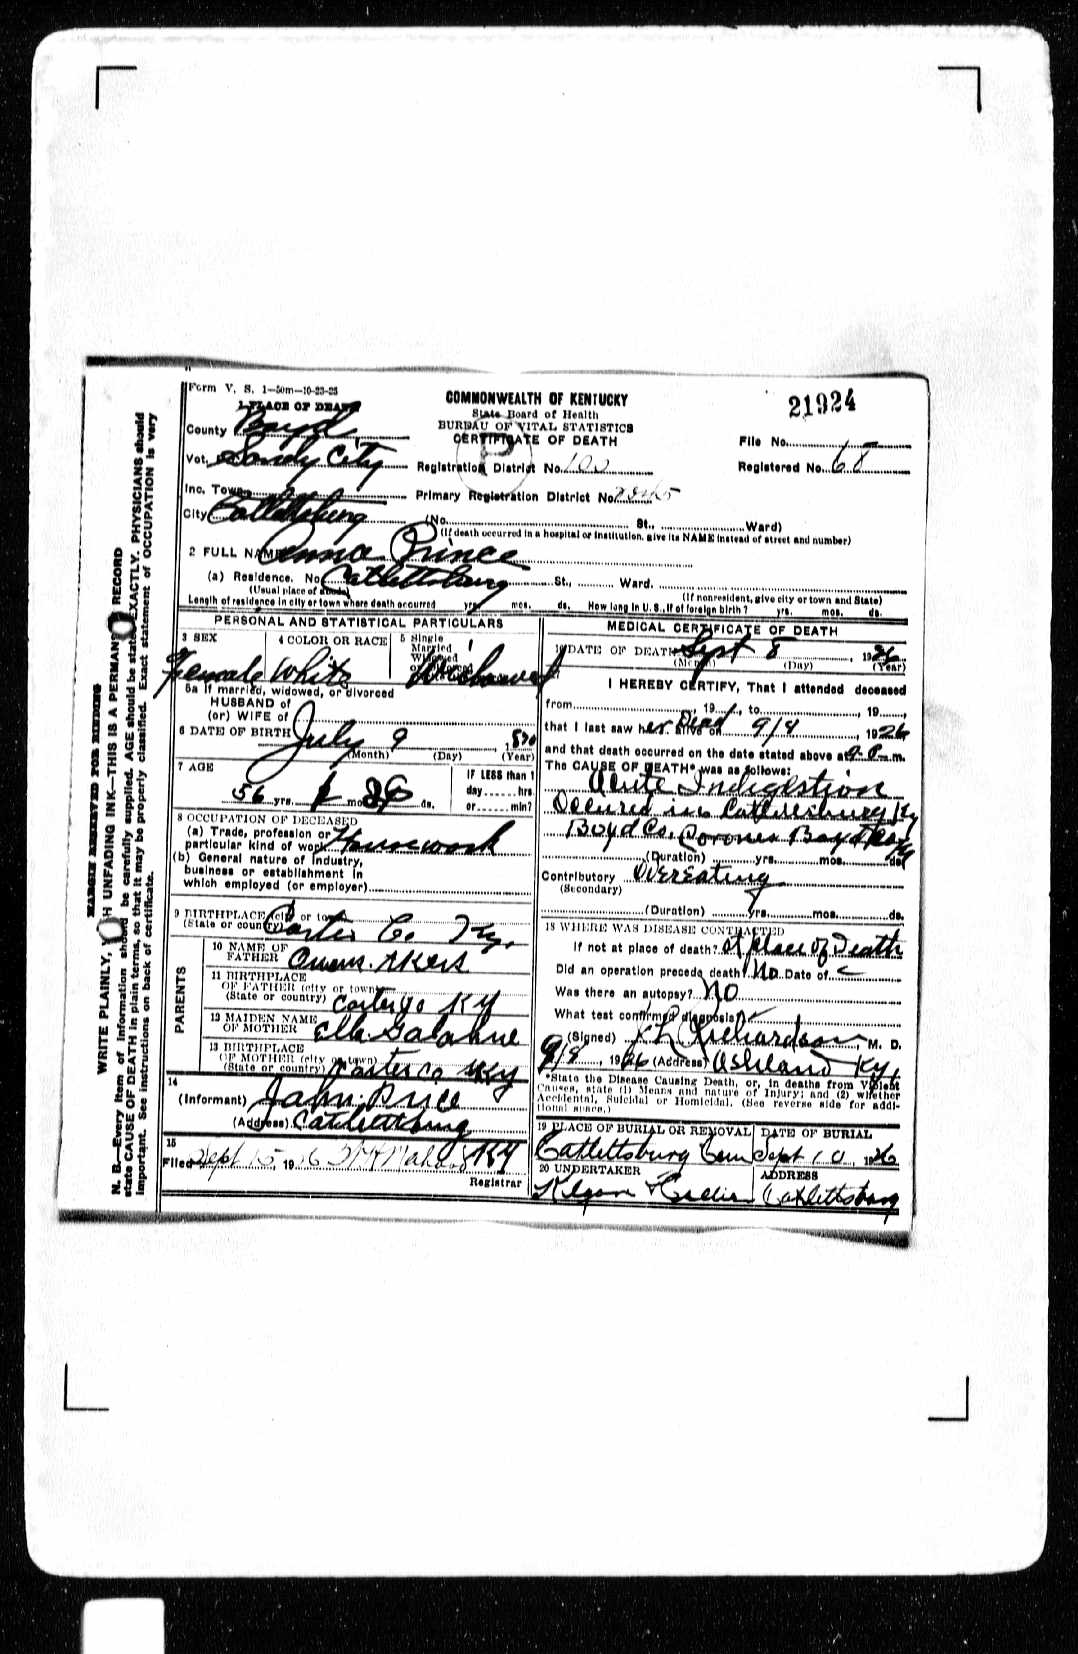 Form V. S. 1—50m—10-23-25
COMMONWEALTH OF KENTUCKY
State Board of Health
BUREAU OF VITAL STATISTICS
CERTIFICATE OF DEATH
21924
1 PLACE OF DEATH
County Boyd
Vot. Sandy City
Registration District No. 100
File No.
Registered No. 68
Inc. Town
Primary Registration District No.
City Catlettsburg (No. St., Ward)
(If death occurred in a hospital or institution, give its NAME instead of street and number)
2 FULL NAME Anna Prince
(a) Residence. No. Catlettsburg St., Ward.
(Usual place of abode) (If nonresident, give city or town and State)
Length of residence in city or town where death occurred yrs. mos. ds. How long in U. S., if of foreign birth? yrs. mos. ds.
PERSONAL AND STATISTICAL PARTICULARS
3 SEX
Female
4 COLOR OR RACE
White
5 Single
Married
Widowed
or Divorced
5a If married, widowed, or divorced
HUSBAND of
(or) WIFE of
6 DATE OF BIRTH July 9, 1870
(Month) (Day) (Year)
7 AGE
56 yrs. mos. ds.
IF LESS than 1
day ...... hrs.
or ...... min?
8 OCCUPATION OF DECEASED
(a) Trade, profession or
particular kind of work Housework
(b) General nature of industry,
business or establishment in
which employed (or employer)
9 BIRTHPLACE (city or town)
(State or country) Carter Co. Ky.
PARENTS
10 NAME OF
FATHER Owens Akers
11 BIRTHPLACE
OF FATHER (city or town)
(State or country) Carter Co Ky
12 MAIDEN NAME
OF MOTHER Ella
13 BIRTHPLACE
OF MOTHER (city or town)
(State or country) Carter Co Ky
14
(Informant) John Price
(Address) Catlettsburg
Ky
15
Filed Sept 15, 1926
Registrar
MEDICAL CERTIFICATE OF DEATH
16 DATE OF DEATH Sept 8, 1926
(Month) (Day) (Year)
I HEREBY CERTIFY, That I attended deceased
from , 19 , to , 19 ,
that I last saw her Dead alive on 9/8 1926
and that death occurred on the date stated above at m.
The CAUSE OF DEATH* was as follows:
Acute Indigestion
Occured in Catlettsburg Ky
Boyd Co. Coroner Boyd Co Ky
(Duration) yrs. mos. ds.
Contributory Overeating
(Secondary)
(Duration) yrs. mos. ds.
18 WHERE WAS DISEASE CONTRACTED
If not at place of death? At place of Death
Did an operation precede death? No Date of
Was there an autopsy? No
What test confirmed diagnosis?
(Signed) Richardson, M. D.
9/8, 1926 (Address) Ashland Ky.
*State the Disease Causing Death, or, in deaths from Violent
Causes, state (1) Means and nature of Injury; and (2) whether
Accidental, Suicidal or Homicidal. (See reverse side for addi-
tional space.)
19 PLACE OF BURIAL OR REMOVAL
Catlettsburg Cem
DATE OF BURIAL
Sept 10, 1926
20 UNDERTAKER
ADDRESS
Catlettsburg
MARGIN RESERVED FOR BINDING
WRITE PLAINLY, WITH UNFADING INK—THIS IS A PERMANENT RECORD
N. B.—Every item of information should be carefully supplied. AGE should be stated EXACTLY. PHYSICIANS should
state CAUSE OF DEATH in plain terms, so that it may be properly classified. Exact statement of OCCUPATION is very
important. See instructions on back of certificate.